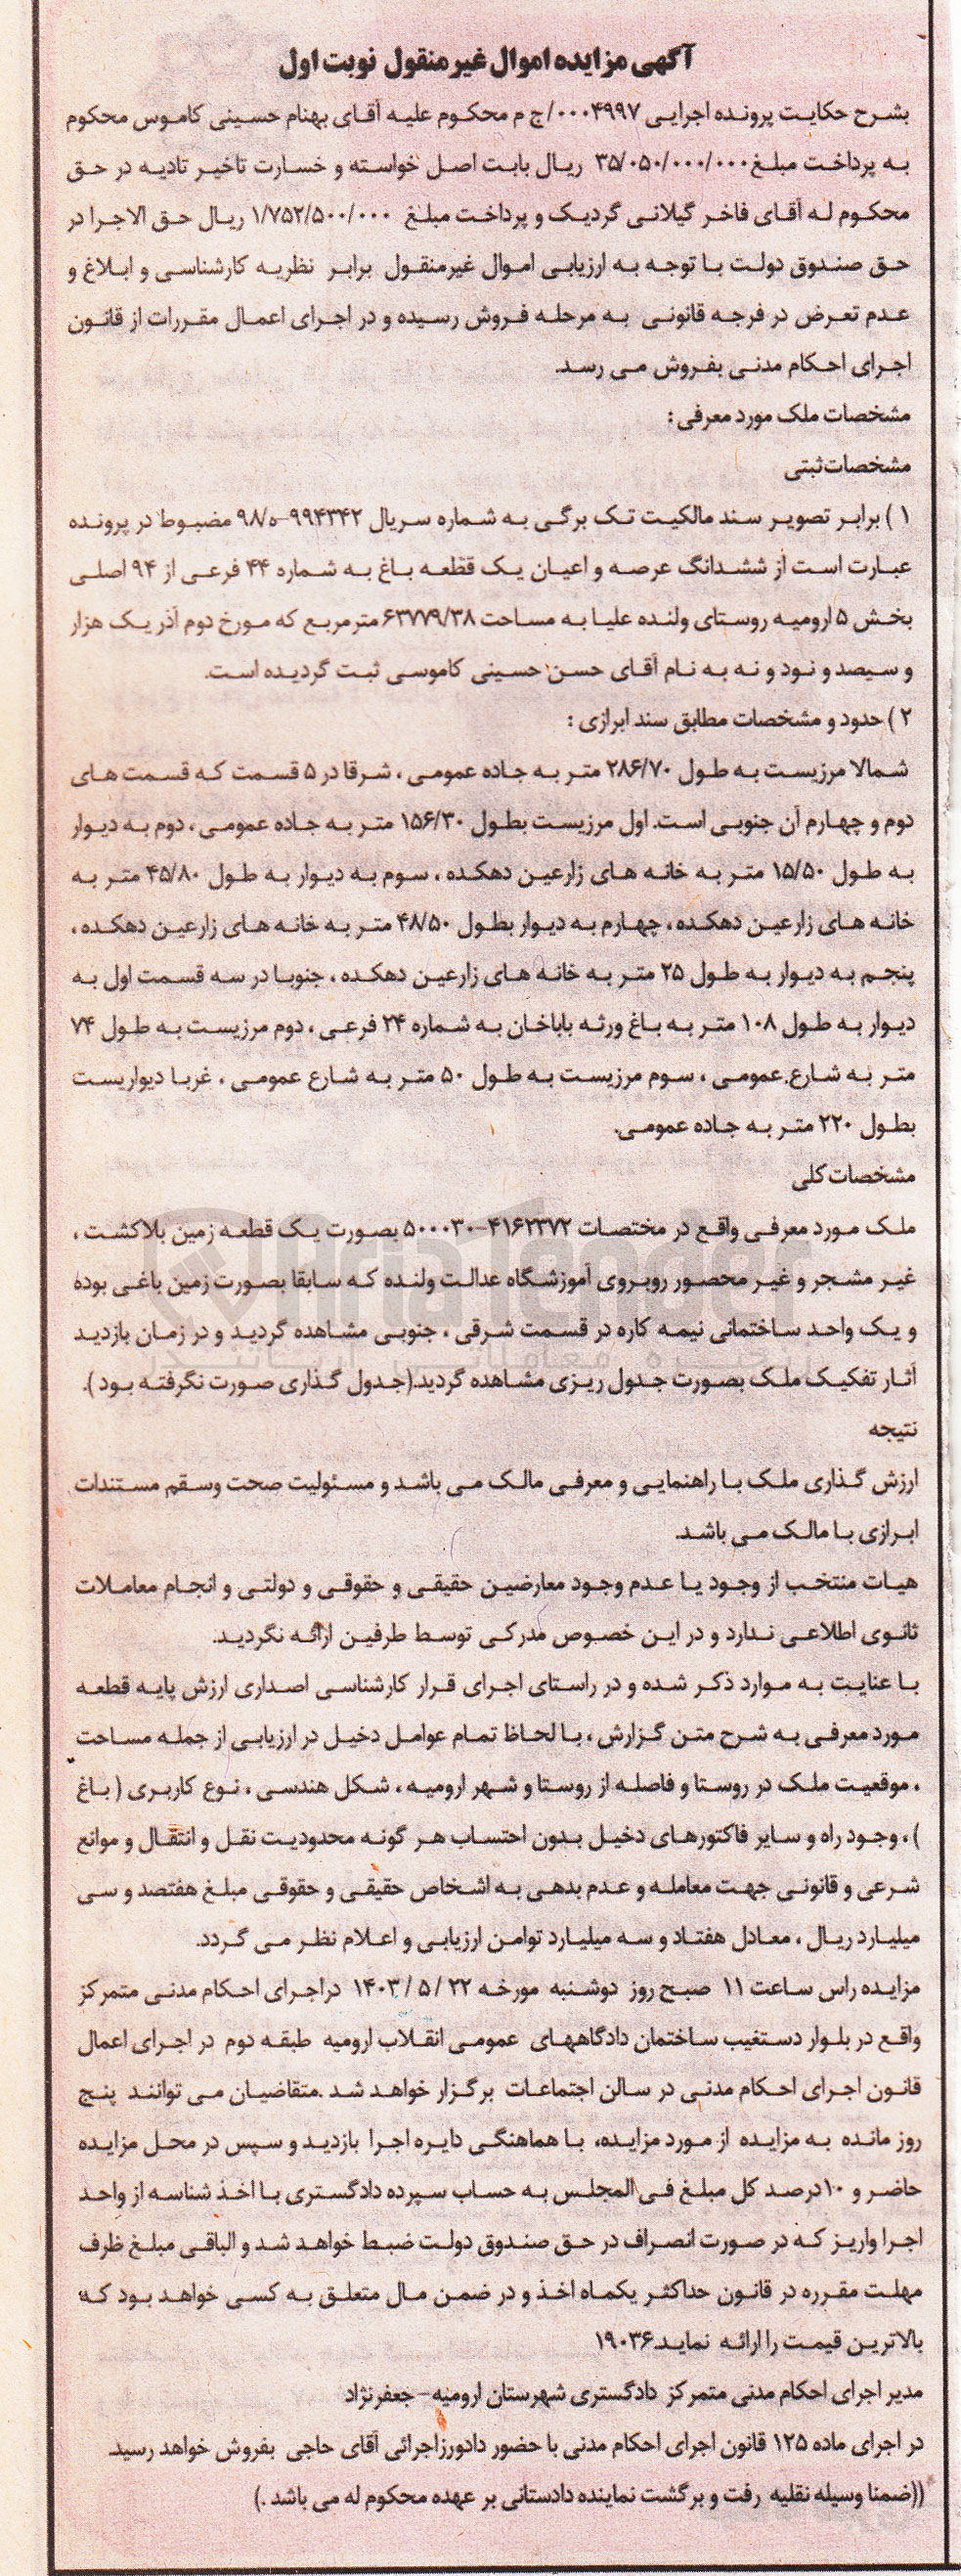 آگهی مزایده اموال غیر منقول نوبت اول
بشرح حکایت پرونده اجرایی ۰۰۰۴۹۹۷/ج م محکوم علیه آقای بهنام حسینی کاموس محکوم
به پرداخت مبلغ ۳۵/۰۵۰/۰۰۰/۰۰۰ ریال بابت اصل خواسته و خسارت تاخیر تادیه در حق
محکوم له آقای فاخر گیلانی گردیک و پرداخت مبلغ ۱/۷۵۲/۵۰۰/۰۰۰ ریال حق الاجرا در
حق صندوق دولت با توجه به ارزیابی اموال غیرمنقول برابر نظریه کارشناسی و ابلاغ و
عدم تعرض در فرجه قانونی به مرحله فروش رسیده و در اجرای اعمال مقررات از قانون
اجرای احکام مدنی بفروش می رسد.
مشخصات ملک مورد معرفی :
مشخصات ثبتی
۱ ) برابر تصویر سند مالکیت تک برگی به شماره سریال ۹۹۴۳۴۲-ه/۹۸ مضبوط در پرونده
عبارت است از ششدانگ عرصه و اعیان یک قظعه باغ به شماره ۴۴ فرعی از ۹۴ اصلی
بخش ۵ ارومیه روستای ولنده علیا به مساحت ۶۳۷۷۹/۳۸ مترمربع که مورخ دوم آذر یک هزار
و سیصد و نود و نه به نام آقای حسن حسینی کاموسی ثبت گردیده است.
۲ ) حدود و مشخصات مطابق سند ابرازی :
شمالا مرزیست به طول ۲۸۶/۷۰ متر به جاده عمومی ، شرقا در ۵ قسمت که قسمت های
دوم و چهارم آن جنوبی است. اول مرزیست بطول ۱۵۶/۳۰ متر به جاده عمومی ، دوم به دیوار
به طول ۱۵/۵۰ متر به خانه های زارعین دهکده ، سوم به دیوار به طول ۴۵/۸۰ متر به
خانه های زارعین دهکده ، چهارم به دیوار بطول ۴۸/۵۰ متر به خانه های زارعین دهکده ،
پنجم به دیوار به طول ۲۵ متر به خانه های زارعین دهکده ، جنوبا در سه قسمت اول به
دیوار به طول ۱۰۸ متر به باغ ورثه باباخان به شماره ۲۴ فرعی ، دوم مرزیست به طول ۷۴
متر به شارع عمومی ، سوم مرزیست به طول ۵۰ متر به شارع عمومی ، غربا دیواریست
بطول ۲۲۰ متر به جاده عمومی.
مشخصات کلی
ملک مورد معرفی واقع در مختصات ۴۱۶۲۳۷۲-۵۰۰۰۳۰ بصورت یک قطعه زمین بلاکشت ،
غیر مشجر و غیر محصور روبروی آموزشگاه عدالت ولنده که سابقا بصورت زمین باغی بوده
و یک واحد ساختمانی نیمه کاره در قسمت شرقی ، جنوبی مشاهده گردید و در زمان بازدید
آثار تفکیک ملک بصورت جدول ریزی مشاهده گردید.(جدول گذاری صورت نگرفته بود ).
نتیجه
ارزش گذاری ملک با راهنمایی و معرفی مالک می باشد و مسئولیت صحت وسقم مستندات
ابرازی با مالک می باشد.
هیات منتخب از وجود یا عدم وجود معارضین حقیقی و حقوقی و دولتی و انجام معاملات
ثانوی اطلاعی ندارد و در این خصوص مدرکی توسط طرفین ارائه نگردید.
با عنایت به موارد ذکر شده و در راستای اجرای قرار کارشناسی اصداری ارزش پایه قطعه
مورد معرفی به شرح متن گزارش ، با لحاظ تمام عوامل دخیل در ارزیابی از جمله مساحت
، موقعیت ملک در روستا و فاصله از روستا و شهر ارومیه ، شکل هندسی ، نوع کاربری ( باغ
) ، وجود راه و سایر فاکتورهای دخیل بدون احتساب هر گونه محدودیت نقل و انتقال و موانع
شرعی و قانونی جهت معامله و عدم بدهی به اشخاص حقیقی و حقوقی مبلغ هفتصد و سی
میلیارد ریال ، معادل هفتاد و سه میلیارد توامن ارزیابی و اعلام نظر می گردد.
مزایده راس ساعت ۱۱ صبح روز دوشنبه مورخه ۲۲ / ۵ / ۱۴۰۳ دراجرای احکام مدنی متمرکز
واقع در بلوار دستغیب ساختمان دادگاههای عمومی انقلاب ارومیه طبقه دوم در اجرای اعمال
قانون اجرای احکام مدنی در سالن اجتماعات برگزار خواهد شد .متقاضیان می توانند پنج
روز مانده به مزایده از مورد مزایده، با هماهنگی دایره اجرا بازدید و سپس در محل مزایده
حاضر و ۱۰درصد کل مبلغ فی المجلس به حساب سپرده دادگستری با اخذ شناسه از واحد
اجرا واریز که در صورت انصراف در حق صندوق دولت ضبط خواهد شد و الباقی مبلغ ظرف
مهلت مقرره در قانون حداکثر یکماه اخذ و در ضمن مال متعلق به کسی خواهد بود که
بالاترین قیمت را ارائه نماید.۱۹۰۳۶
مدیر اجرای احکام مدنی متمرکز دادگستری شهرستان ارومیه - جعفرنژاد
در اجرای ماده ۱۲۵ قانون اجرای احکام مدنی با حضور دادورزاجرائی آقای حاجی بفروش خواهد رسید.
((ضمنا وسیله نقلیه رفت و برگشت نماینده دادستانی بر عهده محکوم له می باشد .)